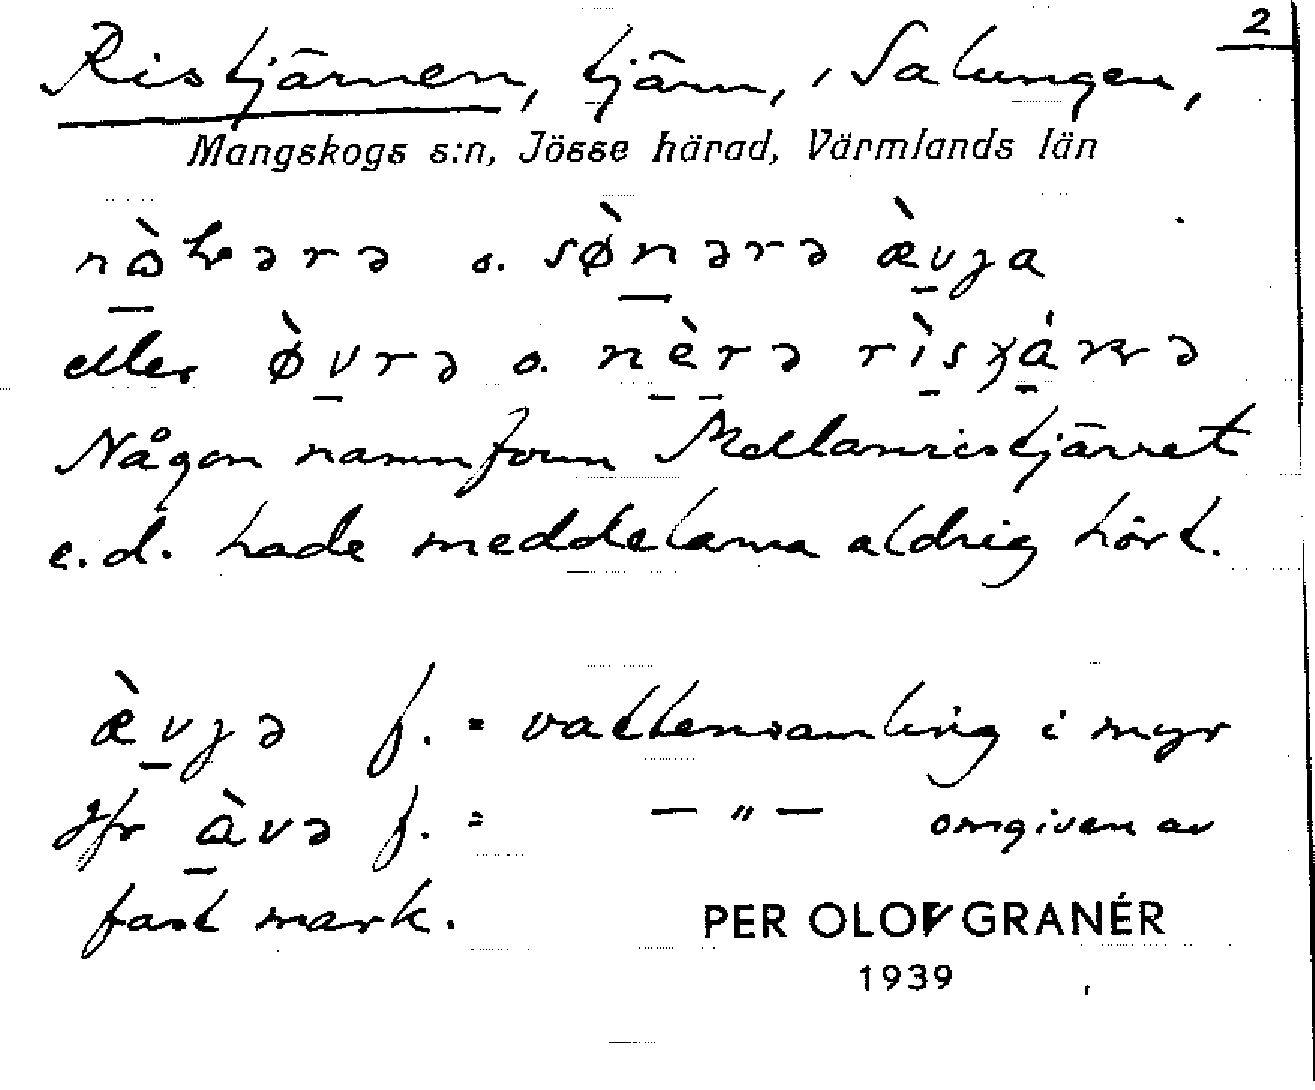 2
Ristjärnen, tjärn, i Salungen,
Mangskogs s:n, Jösse härad, Värmlands län
o. sø̀nərə æ̀vja
eller ø̀vrə o. nèrə
Någon namnform Mellanristjärnet
e.d. hade meddelarna aldrig hört.
æ̀vjə f. = vattensamling i myr
Jfr àvə f. = — " — omgiven av
fast mark.
PER OLOF GRANÉR
1939